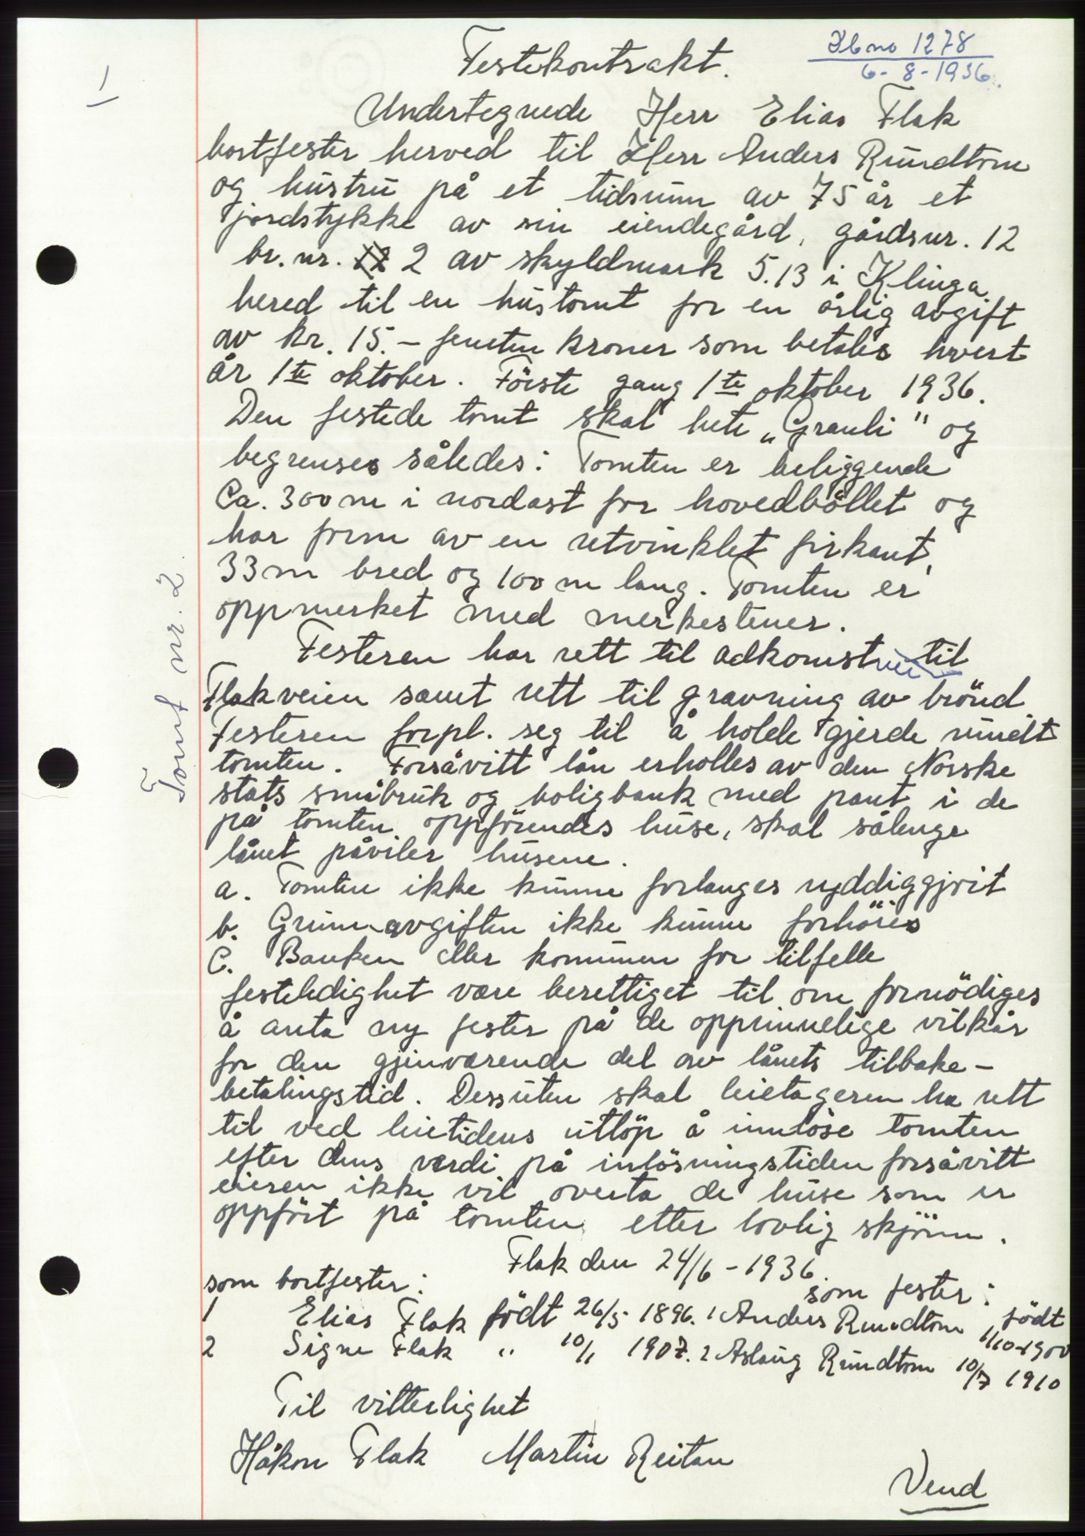 1
Festekontrakt.
Kb no 1278
6-8-1936.
Undertegnede Herr Elias Flak
bortfester herved til Herr Anders Rundtom
og hustru på et tidsrum av 75 år et
jordstykke av sin eiendegård, gårdsnr. 12
br. nr. 2 av skyldmark 5.13 i Klinga
hered til en hustomt for en årlig avgift
av kr. 15.- femten kroner som betales hvert
år 1te oktober. Förste gang 1te oktober 1936.
Den festede tomt skal hete „Granli" og
begrenses således: Tomten er beliggende
Ca. 300 m i nordøst for hovedböllet og
har form av en retvinklet firkant,
33 m bred og 100 m lang. Tomten er
oppmerket med merkestener.
Festeren har rett til adkomst til
Flakveien samt rett til gravning av brönd
Festeren forpl. seg til å holde gjerde rundt
tomten. Forsåvitt lån erholles av den Norske
stats småbruk og boligbank med pant i de
på tomten oppförendes huse, skal sålenge
lånet påviler husene.
a. Tomten ikke kunne forlanges ryddiggjort
b. Grunnavgiften ikke kunne forhöies
C. Banken eller kommunen for tilfelle
festeledighet være berettiget til om fornödiges
å anta ny fester på de opprinnelige vilkår
for den gjenværende del av lånets tilbake-
betalingstid. Dessuten skal leietageren ha rett
til ved leietidens utlöp å innlöse tomten
efter dens verdi på inlösningstiden forsåvitt
eieren ikke vil overta de huse som er
oppfört på tomten etter lovlig skjönn.
Flak den 24/6 - 1936
som bortfester: som fester:
1 Elias Flak födt 26/5 1896. 1 Anders Rundtom födt 1/10-1900
2 Signe Flak „ 10/1 1907. 2 Aslaug Rundtom 10/7 1910
Til vitterlighet
Håkon Flak Martin Reitan
Vend
Tomt nr. 2